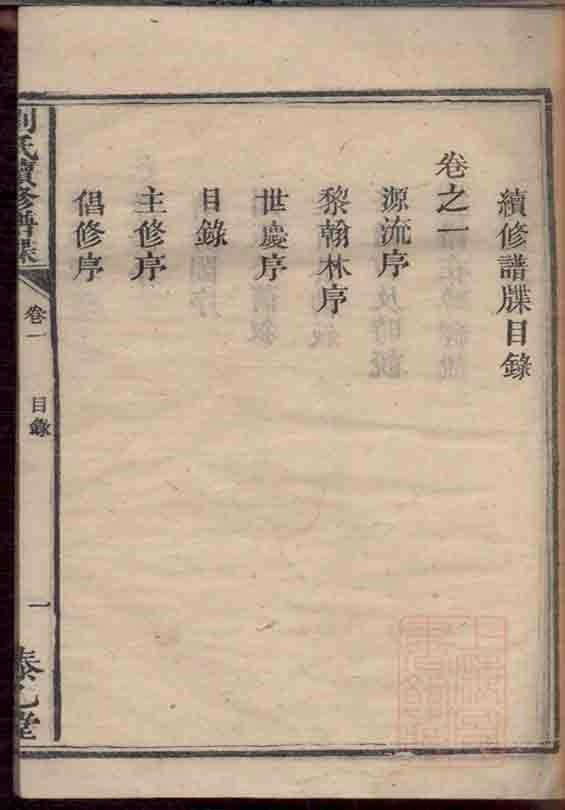 續修譜牒目錄
卷之一
源流序
黎翰林序
世慶序
目錄
主修序
倡修序
劉氏續修譜牒
卷一
目錄
一
泰乙堂